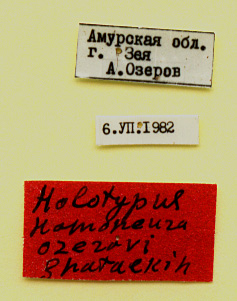 Амурская обл.
г. Зея
А.Озеров
6.УП.I982
Holotypus
Homoneura
ozerovi
Shatalkin